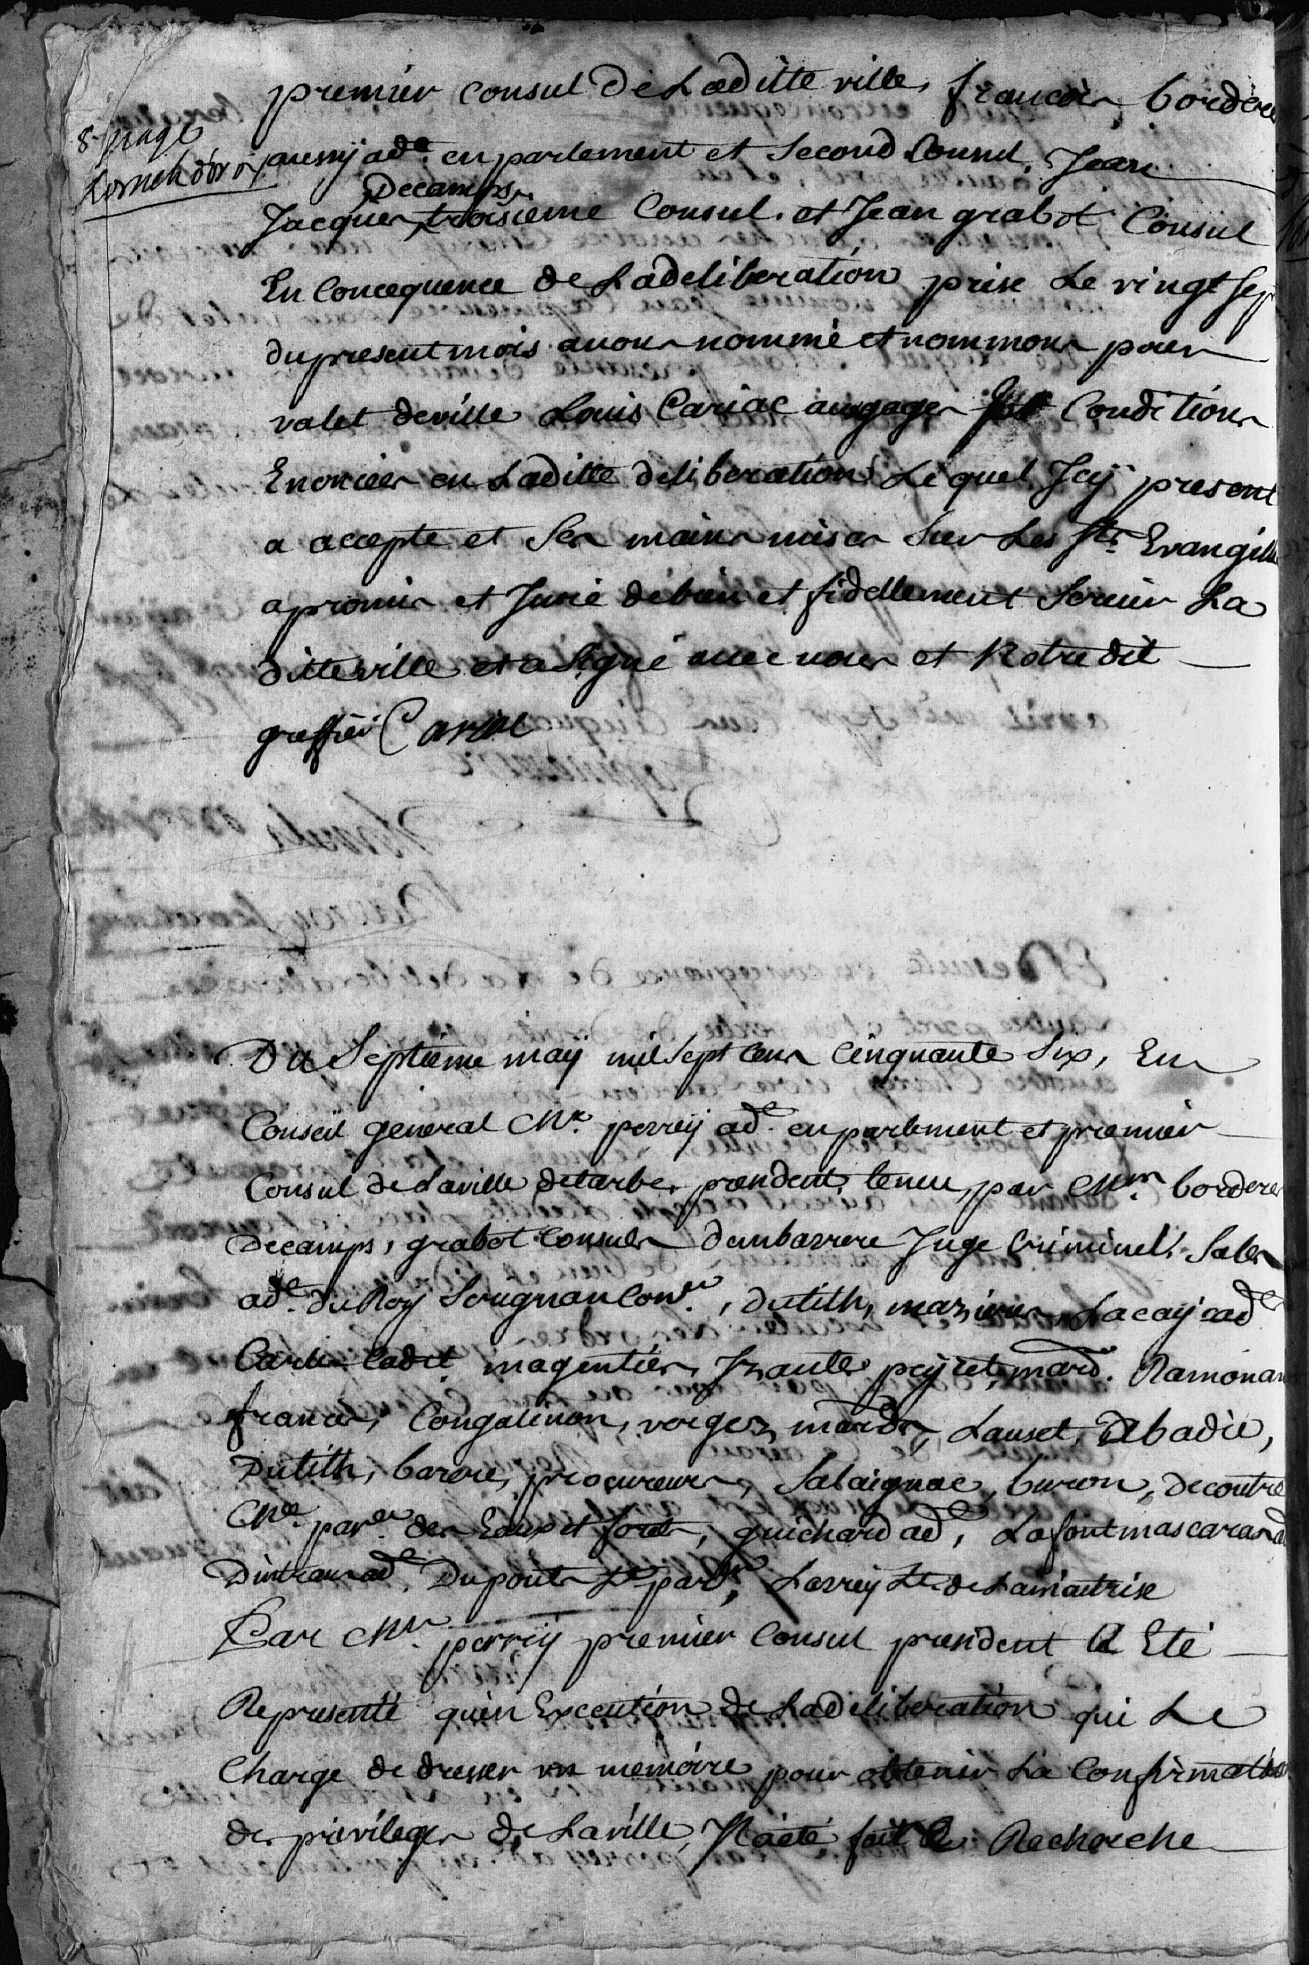 8e page
premier Consul de Laditte ville, francois bordere
aussy ade. en parlement et Second Consul, Jean
Decamps
Jacques, troisieme Consul. et Jean grabot Consul
En Concequence de La deliberation prise Le vingt sep
du present mois avons nommé et nommons pour
valet deville Louis Cariac aux gages Conditions
Enoncées en Laditte deliberation, Lequel Jcy present
a accepte et Ses mains mises Sur Les Sts Evangille
a promis et Juré de bien et fidellement Servir La
ditte ville et a Signé avec nous et Notredit
greffier Cariac
Du Septieme may mil Sept Cens Cinquante Six, En
Conseil general Mr. perrey ade. en parlement et premier
Consul de Laville detarbes president, tenu, par Mrs. bordere
Decamps, grabot Consuls Danbarrere Juge Criminel, Sales
ade. du Roy Sougnan Coner, dutilh, mazieres, Lacay ade
Carle Cadet, magenties, peyret, mard. Ramonan
francis, Congalinon, verges, mards, Lauset, Abadie,
Dutilh, barere, procureurs, Salaignac, buron, decontre
Me. parer. des Eaux et forets, guichard ade, Lafont mascaras ad
Dintrans ade. Dupont Larrey Lt de Lamaitrise
Par Mr. perrey premier Consul president a Eté
Representé qu'en Execution de Ladeliberation qui Le
Charge de dresser un memoire pour obtenir La Confirmation
des privileges de Laville, Il a été fait Recherche